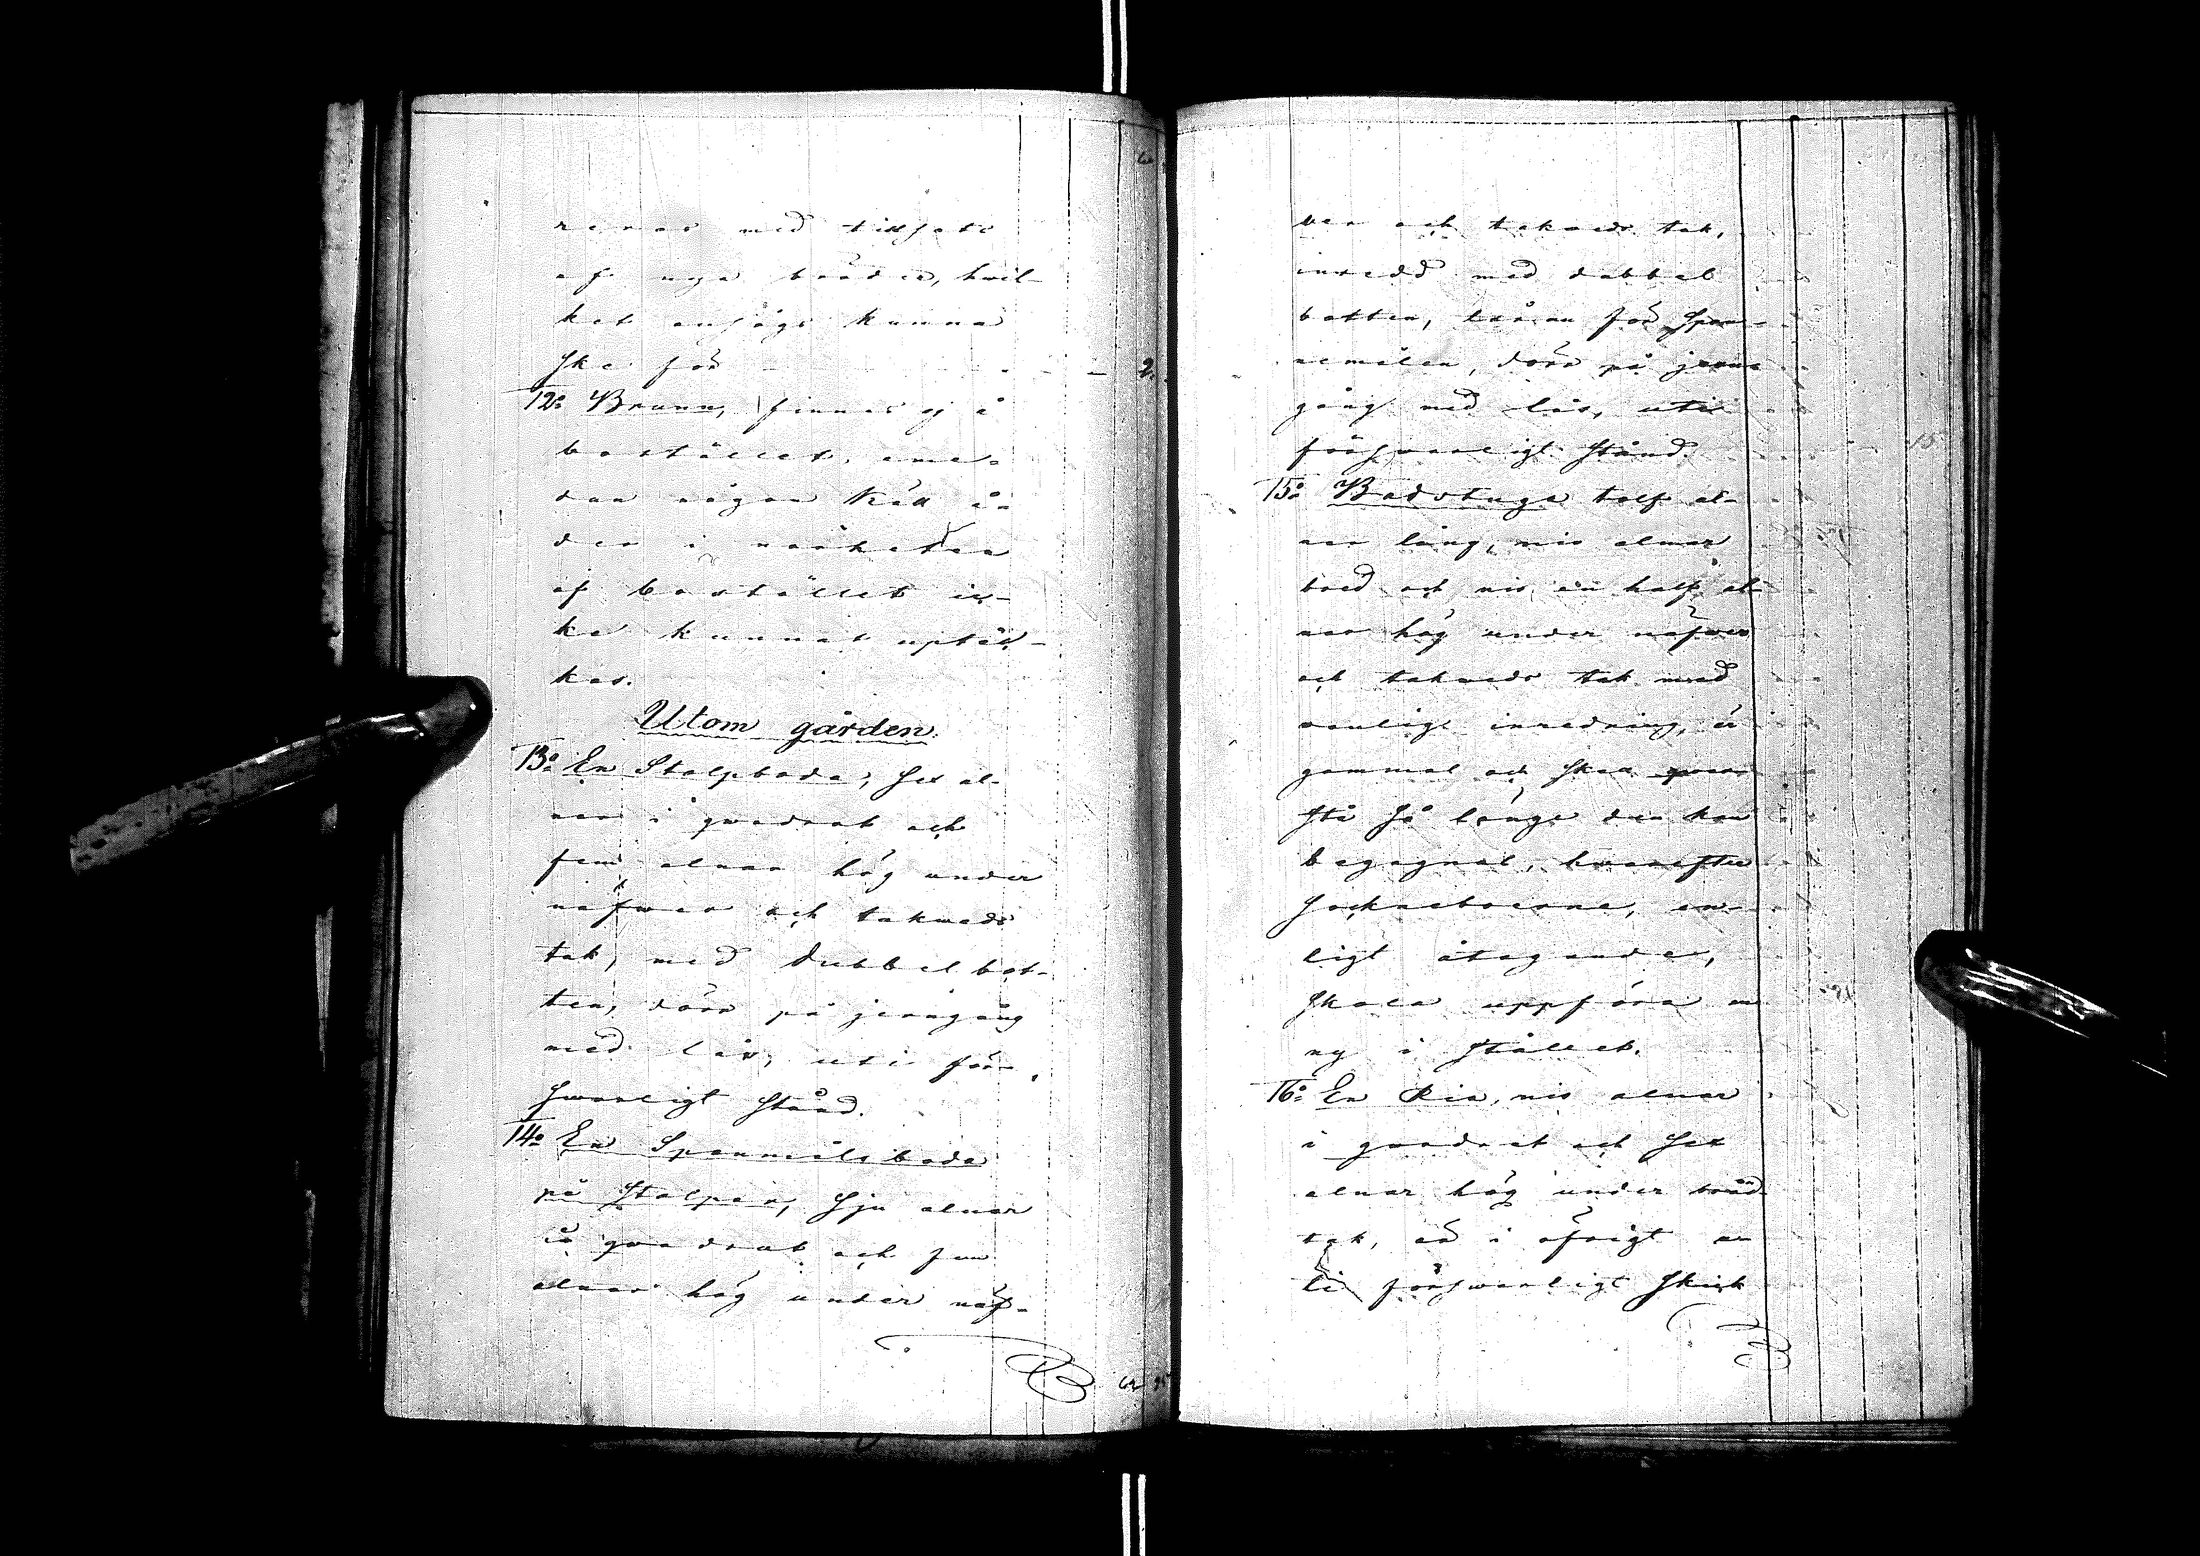 reras med tillsats
af nya bräder, hvil-
ket ansågs kunna
ske för - - - 2.
12o Brunn, finnes ej å
bostället, eme-
dan någon Käll å-
der i närheten
af bostället ic-
ke kunnat uptäc-
kas.
Utom gården.
13o En Stolpboda, sex al-
nar i qvadrat och
fem alnar hög under
näfwer och takweds
tak, med dubbel bot-
ten, dörr på jerngång
med lås, uti för-
swarligt stånd.
14o En Spanmålsboda
på Stolpar, sju alnar
i qvadrat och fem
alnar hög under näf-
62 95
ver och takveds tak,
inredd med dubbel
botten, lårar för Span-
nemålen, dörr på jern
gång med lås, uti
försvarligt stånd.
15o Badstuga tolf al-
nar lång, nio alnar
bred och nio en half al-
nar hög under näfver
och takveds tak med
vanlig inredning, är
gammal och skall qvar
stå så länge den kan
begagnas, hvarefter
Sockneboerne, en-
ligt åtagande,
skola uppföra en
ny i stället.
16o En Ria, nio alnar
i qvadrat och sex
alnar hög under bräd-
tak, är i öfrigt en
försvarligt skick